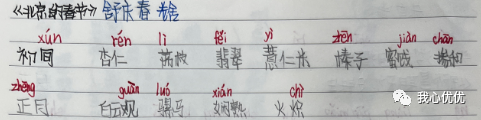 《北京的春节》 舒庆春 老舍
xún rén lì fěi yì zhēn jiàn chān
初旬 杏仁 栗 翡翠 薏仁米 榛子 蜜饯 掺和
zhēng guàn luó xián chì
正月 白云观 骡马 娴熟 火炽
我心优优